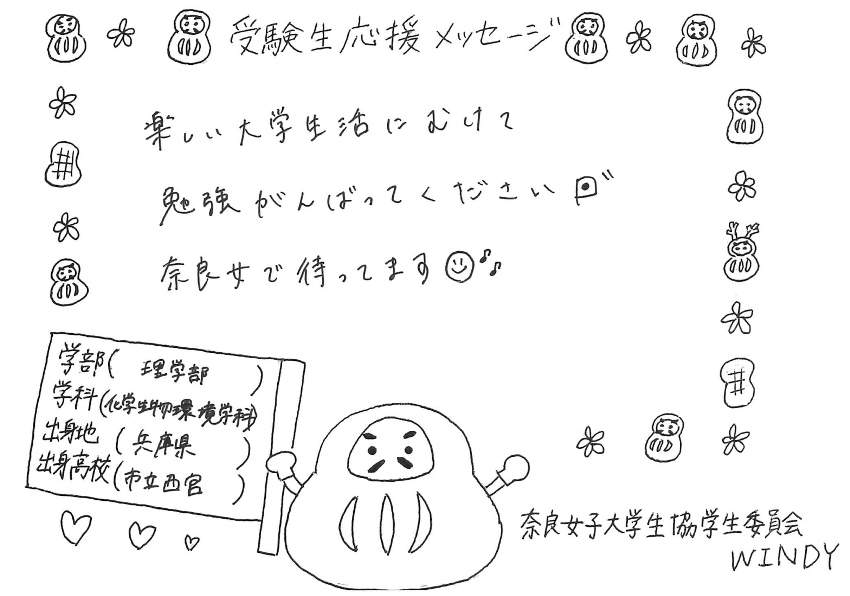 受験生応援メッセージ
楽しい大学生活にむけて
勉強がんばってください
奈良女で待ってます
学部(理学部)
学科(化学生物環境学科)
出身地(兵庫県)
出身高校(市立西宮)
奈良女子大学生協学生委員会
WINDY